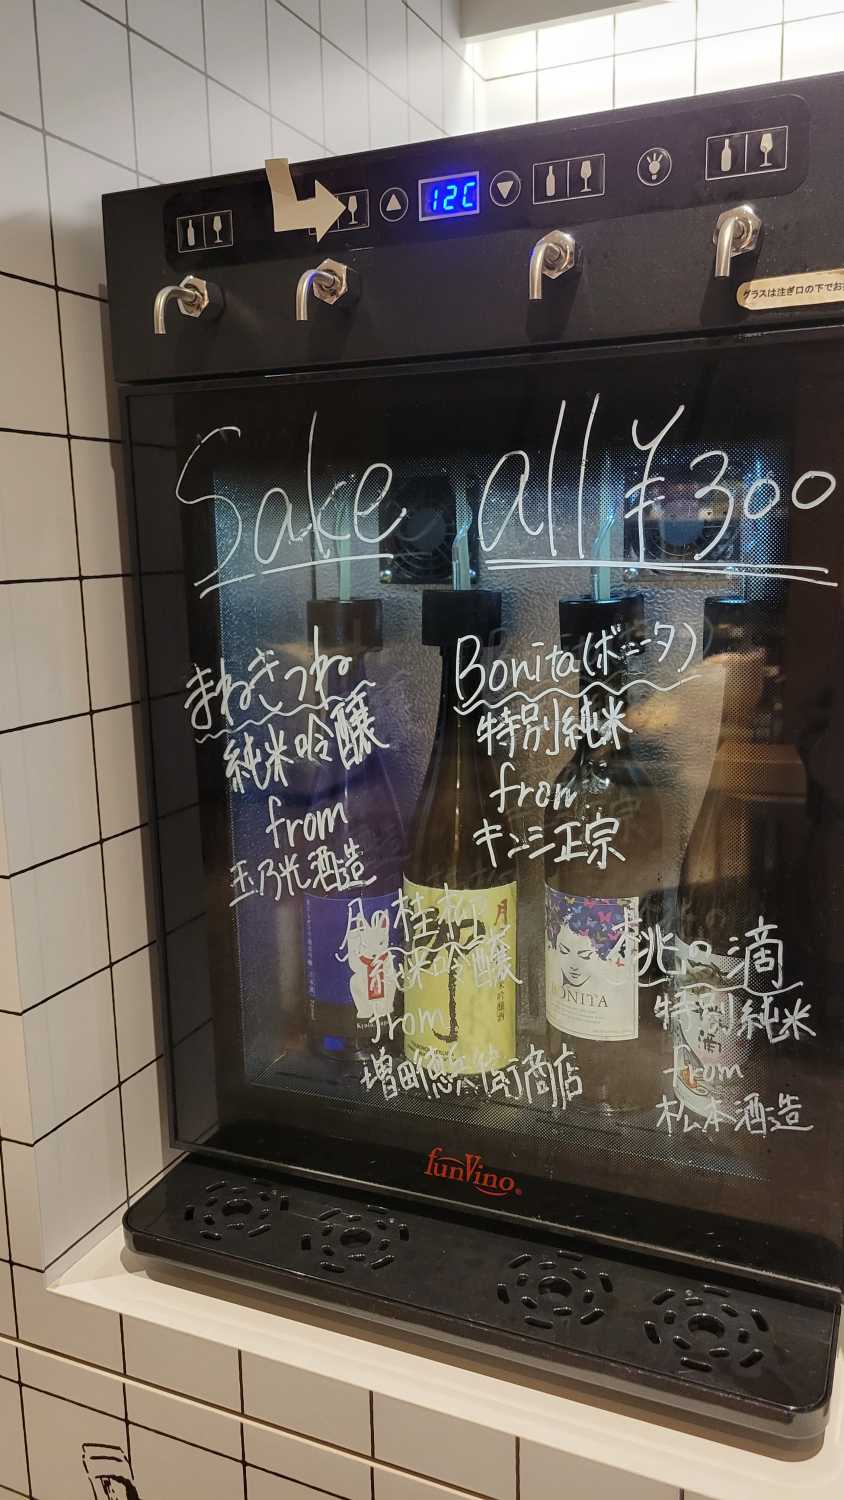 12C
グラスは注ぎ口の下でお
Sake all ¥300
まねきつね
純米吟醸
from
玉乃光酒造
Bonita(ボニータ)
特別純米
from
キンシ正宗
月の桂
純米吟醸
from
増田德兵衛商店
桃の滴
特別純米
from
松本酒造
BONITA
funVino